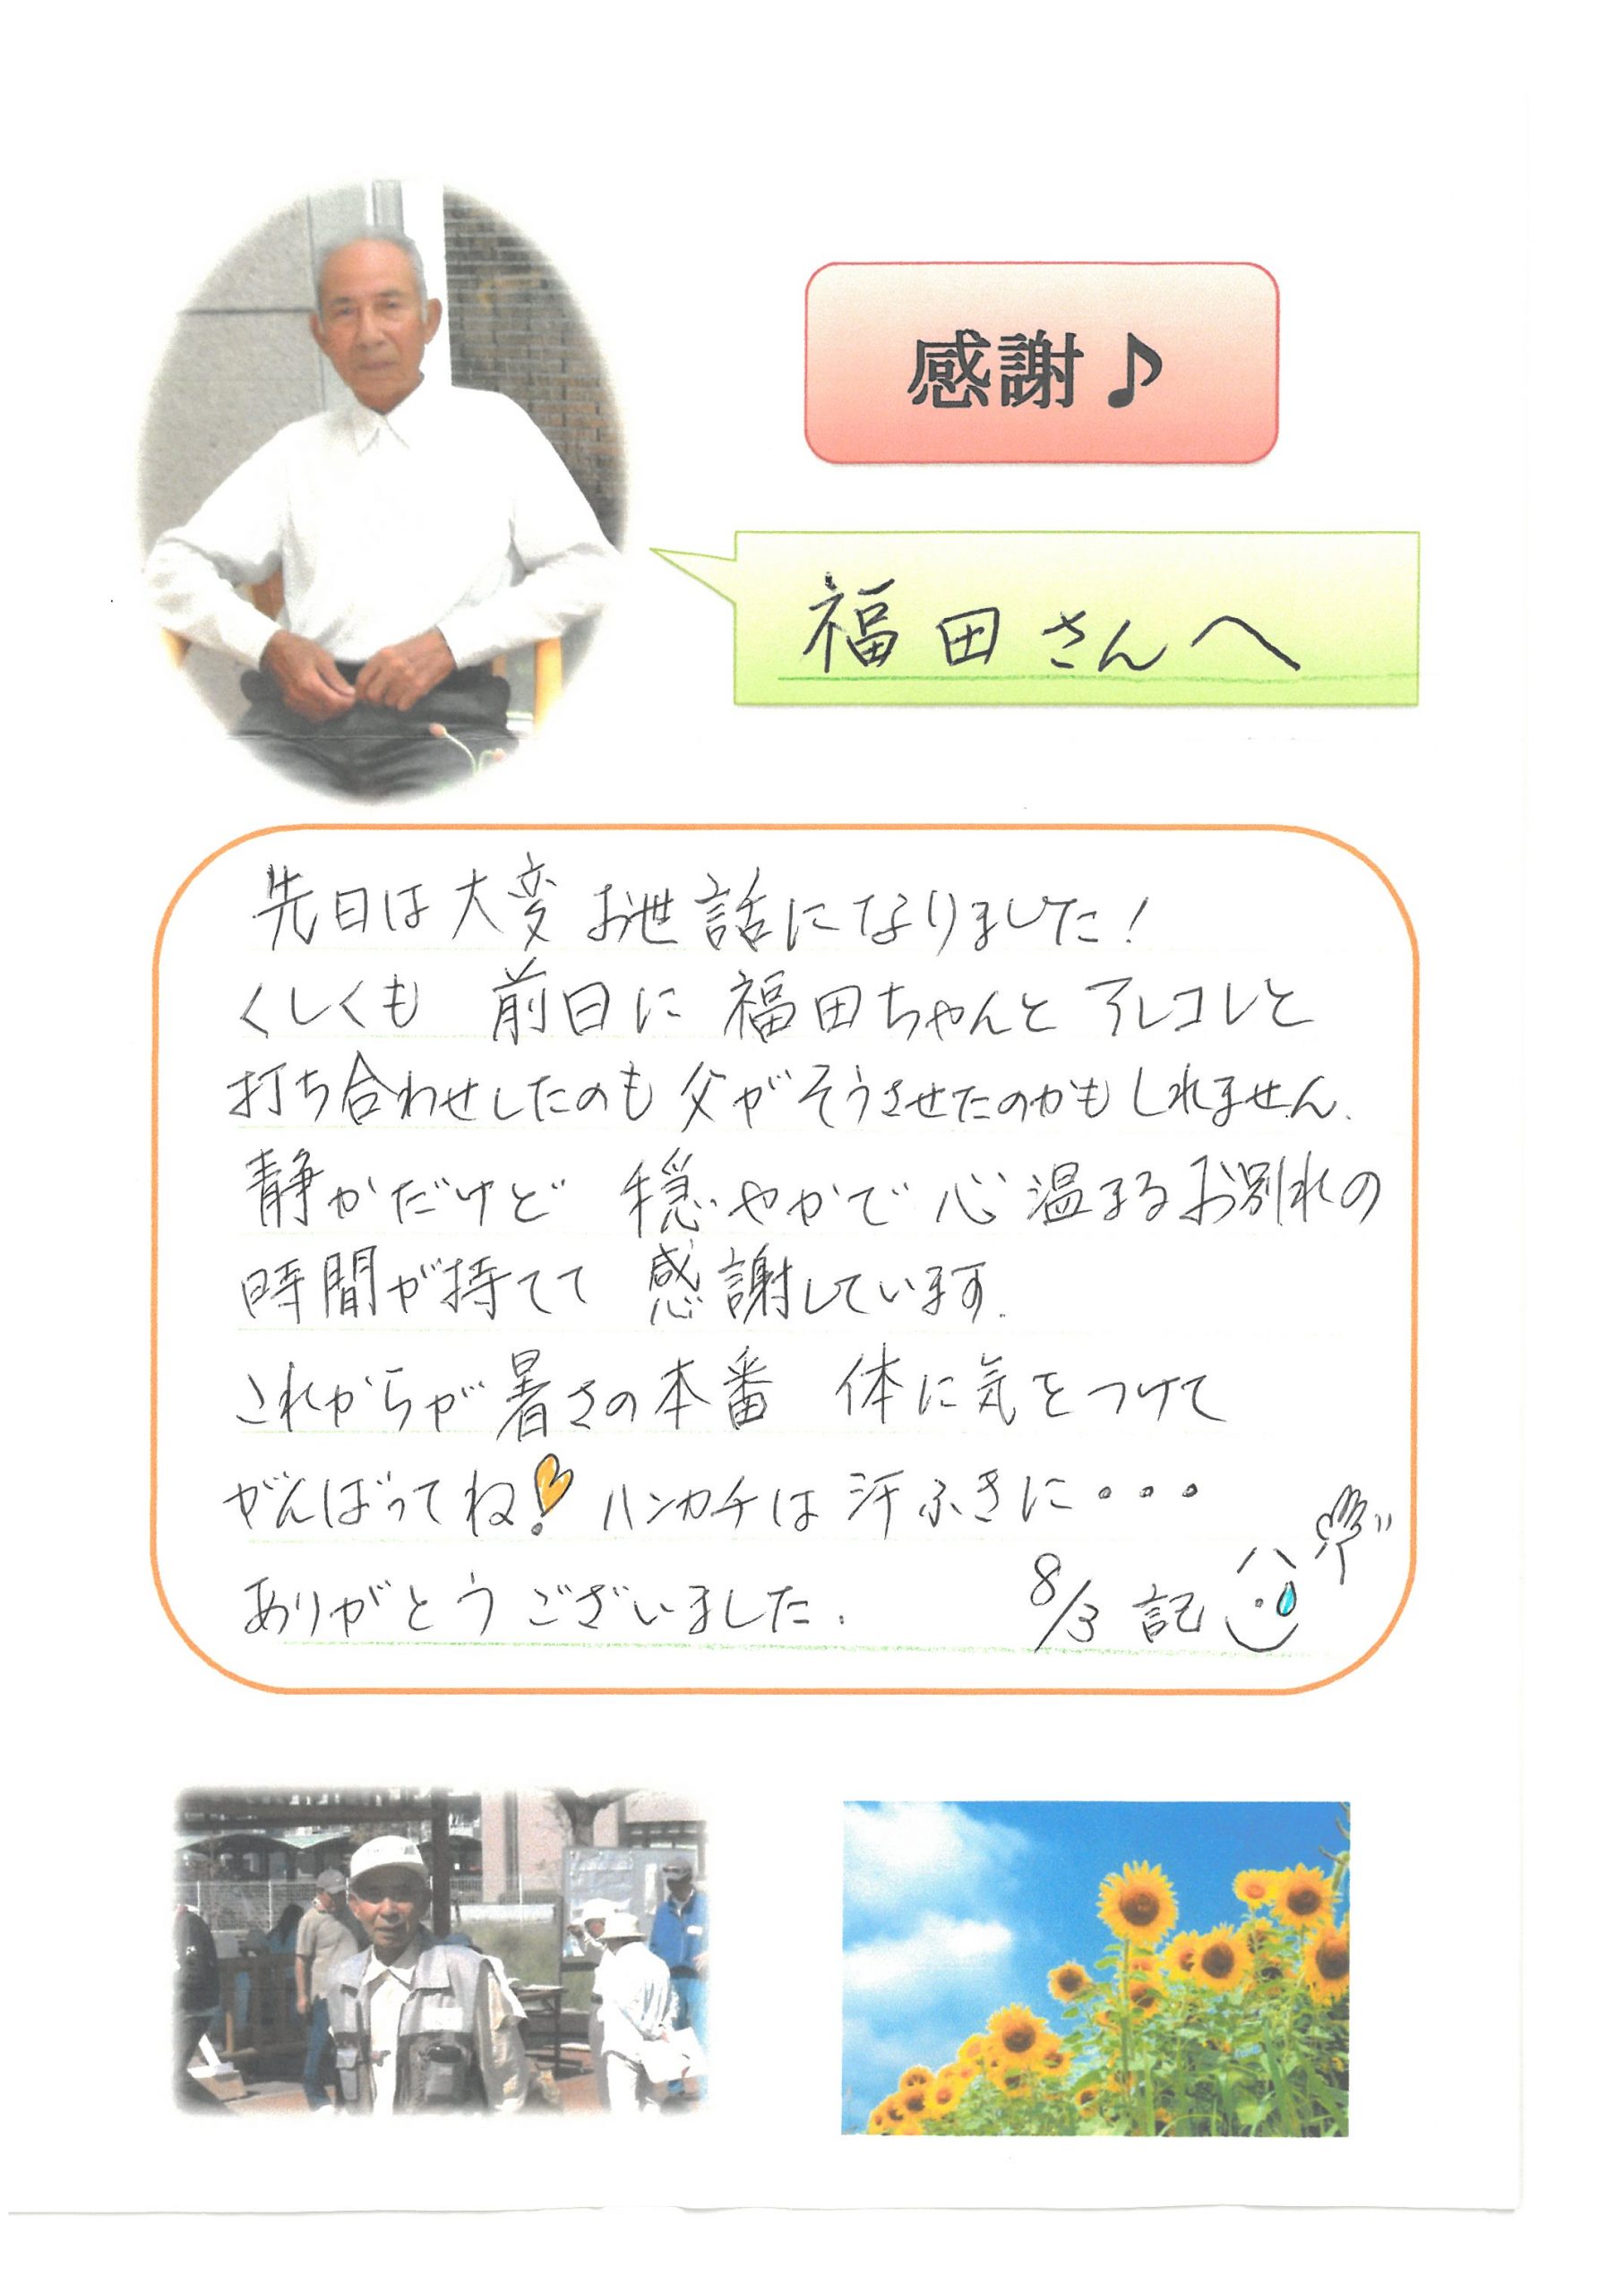 感謝♪
福田さんへ
先日は大変お世話になりました!
くしくも 前日に 福田ちゃんと アレコレと
打ち合わせしたのも 父がそうさせたのかもしれません.
静かだけど 穏やかで 心温まるお別れの
時間が持てて 感謝しています.
これからが暑さの本番 体に気をつけて
がんばってね! ハンカチは 汗ふきに・・・
ありがとうございました. 8/3 記